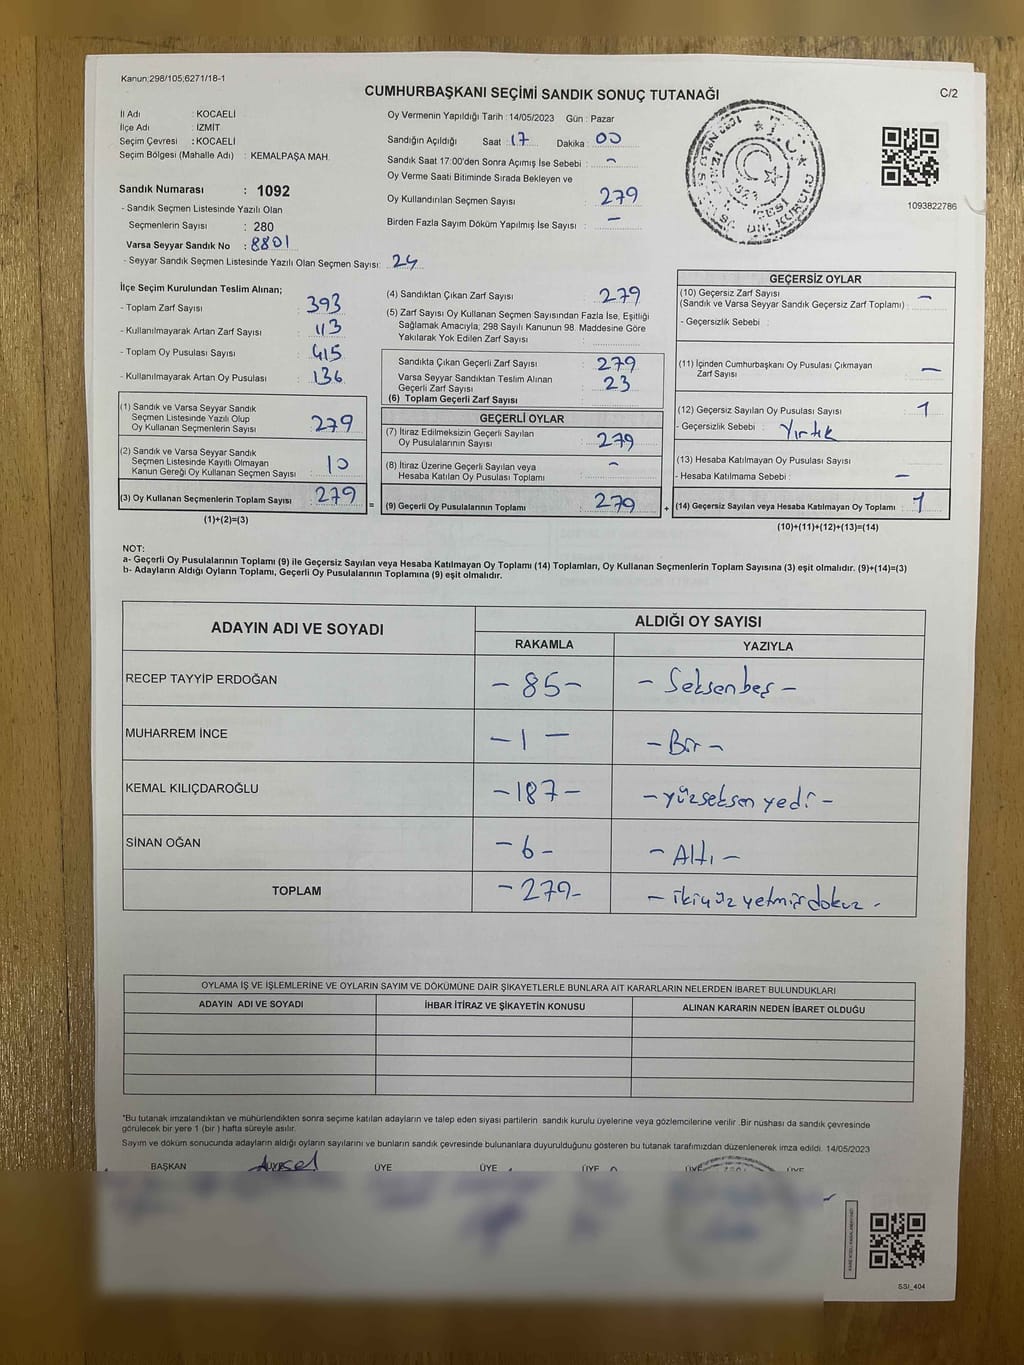 Kanun;298/105;6271/18-1
CUMHURBAŞKANI SEÇİMİ SANDIK SONUÇ TUTANAĞI
C/2
İl Adı : KOCAELİ
İlçe Adı : İZMİT
Seçim Çevresi : KOCAELİ
Seçim Bölgesi (Mahalle Adı) : KEMALPAŞA MAH.
Sandık Numarası : 1092
- Sandık Seçmen Listesinde Yazılı Olan
Seçmenlerin Sayısı : 280
Varsa Seyyar Sandık No : 8801
- Seyyar Sandık Seçmen Listesinde Yazılı Olan Seçmen Sayısı: 24
Oy Vermenin Yapıldığı Tarih : 14/05/2023 Gün : Pazar
Sandığın Açıldığı Saat : 17 Dakika : 00
Sandık Saat 17:00'den Sonra Açımış İse Sebebi : -
Oy Verme Saati Bitiminde Sırada Bekleyen ve
Oy Kullandırılan Seçmen Sayısı : 279
Birden Fazla Sayım Döküm Yapılmış İse Sayısı : -
1093822786
İlçe Seçim Kurulundan Teslim Alınan;
- Toplam Zarf Sayısı : 393
- Kullanılmayarak Artan Zarf Sayısı : 113
- Toplam Oy Pusulası Sayısı : 415
- Kullanılmayarak Artan Oy Pusulası : 136
(1) Sandık ve Varsa Seyyar Sandık
Seçmen Listesinde Yazılı Olup
Oy Kullanan Seçmenlerin Sayısı : 279
(2) Sandık ve Varsa Seyyar Sandık
Seçmen Listesinde Kayıtlı Olmayan
Kanun Gereği Oy Kullanan Seçmen Sayısı : 10
(3) Oy Kullanan Seçmenlerin Toplam Sayısı : 279
(1)+(2)=(3)
(4) Sandıktan Çıkan Zarf Sayısı : 279
(5) Zarf Sayısı Oy Kullanan Seçmen Sayısından Fazla İse, Eşitliği
Sağlamak Amacıyla; 298 Sayılı Kanunun 98. Maddesine Göre
Yakılarak Yok Edilen Zarf Sayısı :
Sandıkta Çıkan Geçerli Zarf Sayısı : 279
Varsa Seyyar Sandıktan Teslim Alınan
Geçerli Zarf Sayısı : 23
(6) Toplam Geçerli Zarf Sayısı :
GEÇERLİ OYLAR
(7) İtiraz Edilmeksizin Geçerli Sayılan
Oy Pusulalarının Sayısı : 279
(8) İtiraz Üzerine Geçerli Sayılan veya
Hesaba Katılan Oy Pusulası Toplamı : -
= (9) Geçerli Oy Pusulalarının Toplamı : 279 +
GEÇERSİZ OYLAR
(10) Geçersiz Zarf Sayısı
(Sandık ve Varsa Seyyar Sandık Geçersiz Zarf Toplamı) : -
- Geçersizlik Sebebi :
(11) İçinden Cumhurbaşkanı Oy Pusulası Çıkmayan
Zarf Sayısı : -
(12) Geçersiz Sayılan Oy Pusulası Sayısı : 1
- Geçersizlik Sebebi : Yırtık
(13) Hesaba Katılmayan Oy Pusulası Sayısı
- Hesaba Katılmama Sebebi : -
(14) Geçersiz Sayılan veya Hesaba Katılmayan Oy Toplamı : 1
(10)+(11)+(12)+(13)=(14)
NOT:
a- Geçerli Oy Pusulalarının Toplamı (9) ile Geçersiz Sayılan veya Hesaba Katılmayan Oy Toplamı (14) Toplamları, Oy Kullanan Seçmenlerin Toplam Sayısına (3) eşit olmalıdır. (9)+(14)=(3)
b- Adayların Aldığı Oyların Toplamı, Geçerli Oy Pusulalarının Toplamına (9) eşit olmalıdır.
ADAYIN ADI VE SOYADI
ALDIĞI OY SAYISI
RAKAMLA YAZIYLA
RECEP TAYYİP ERDOĞAN - 85 - - Seksenbeş -
MUHARREM İNCE - 1 - - Bir -
KEMAL KILIÇDAROĞLU - 187 - - yüzseksen yedi -
SİNAN OĞAN - 6 - - Altı -
TOPLAM - 279 - - ikiyüz yetmiş dokuz -
OYLAMA İŞ VE İŞLEMLERİNE VE OYLARIN SAYIM VE DÖKÜMÜNE DAİR ŞİKAYETLERLE BUNLARA AİT KARARLARIN NELERDEN İBARET BULUNDUKLARI
ADAYIN ADI VE SOYADI İHBAR İTİRAZ VE ŞİKAYETİN KONUSU ALINAN KARARIN NEDEN İBARET OLDUĞU
*Bu tutanak imzalandıktan ve mühürlendikten sonra seçime katılan adayların ve talep eden siyasi partilerin sandık kurulu üyelerine veya gözlemcilerine verilir .Bir nüshası da sandık çevresinde
görülecek bir yere 1 (bir ) hafta süreyle asılır.
Sayım ve döküm sonucunda adayların aldığı oyların sayılarını ve bunların sandık çevresinde bulunanlara duyurulduğunu gösteren bu tutanak tarafımızdan düzenlenerek imza edildi. 14/05/2023
BAŞKAN ÜYE ÜYE ÜYE ÜYE ÜYE
SSI_404